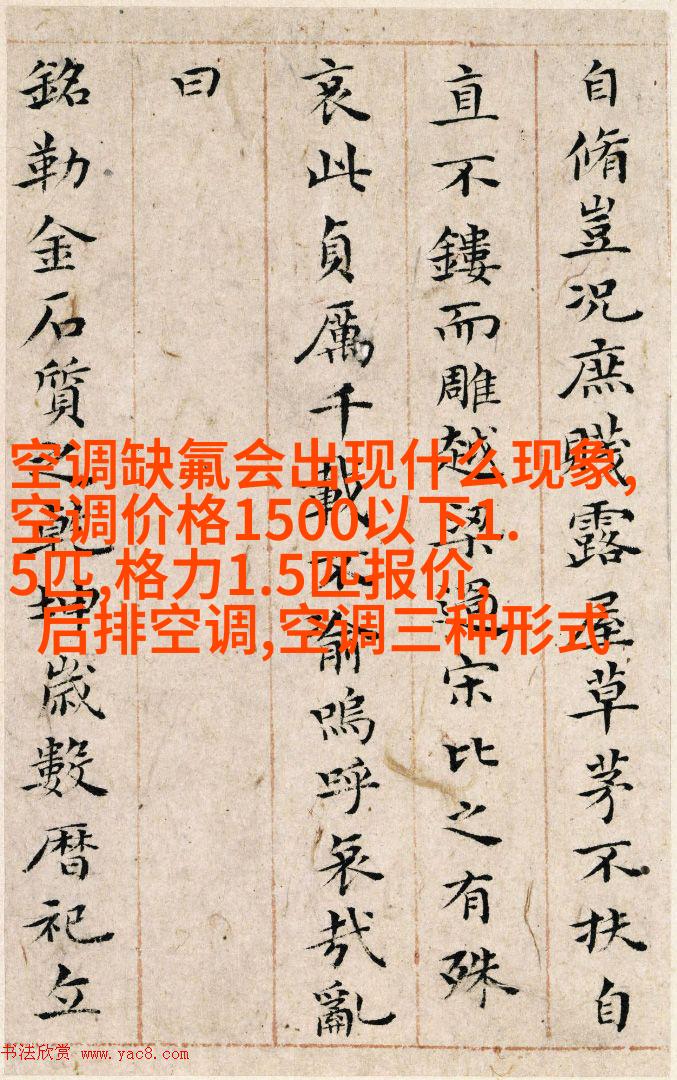 自脩豈況庶賤露屋草茅不扶自
直不鏤而雕越梁過宋比之有殊
哀此貞厲千載不渝嗚呼哀哉亂
曰
銘勒金石質之乾坤歲數暦祀立
空调缺氟会出现什么现象,
空调价格1500以下1.
5匹,格力1.5匹报价,
后排空调,空调三种形式
书法欣赏 www.yac8.com